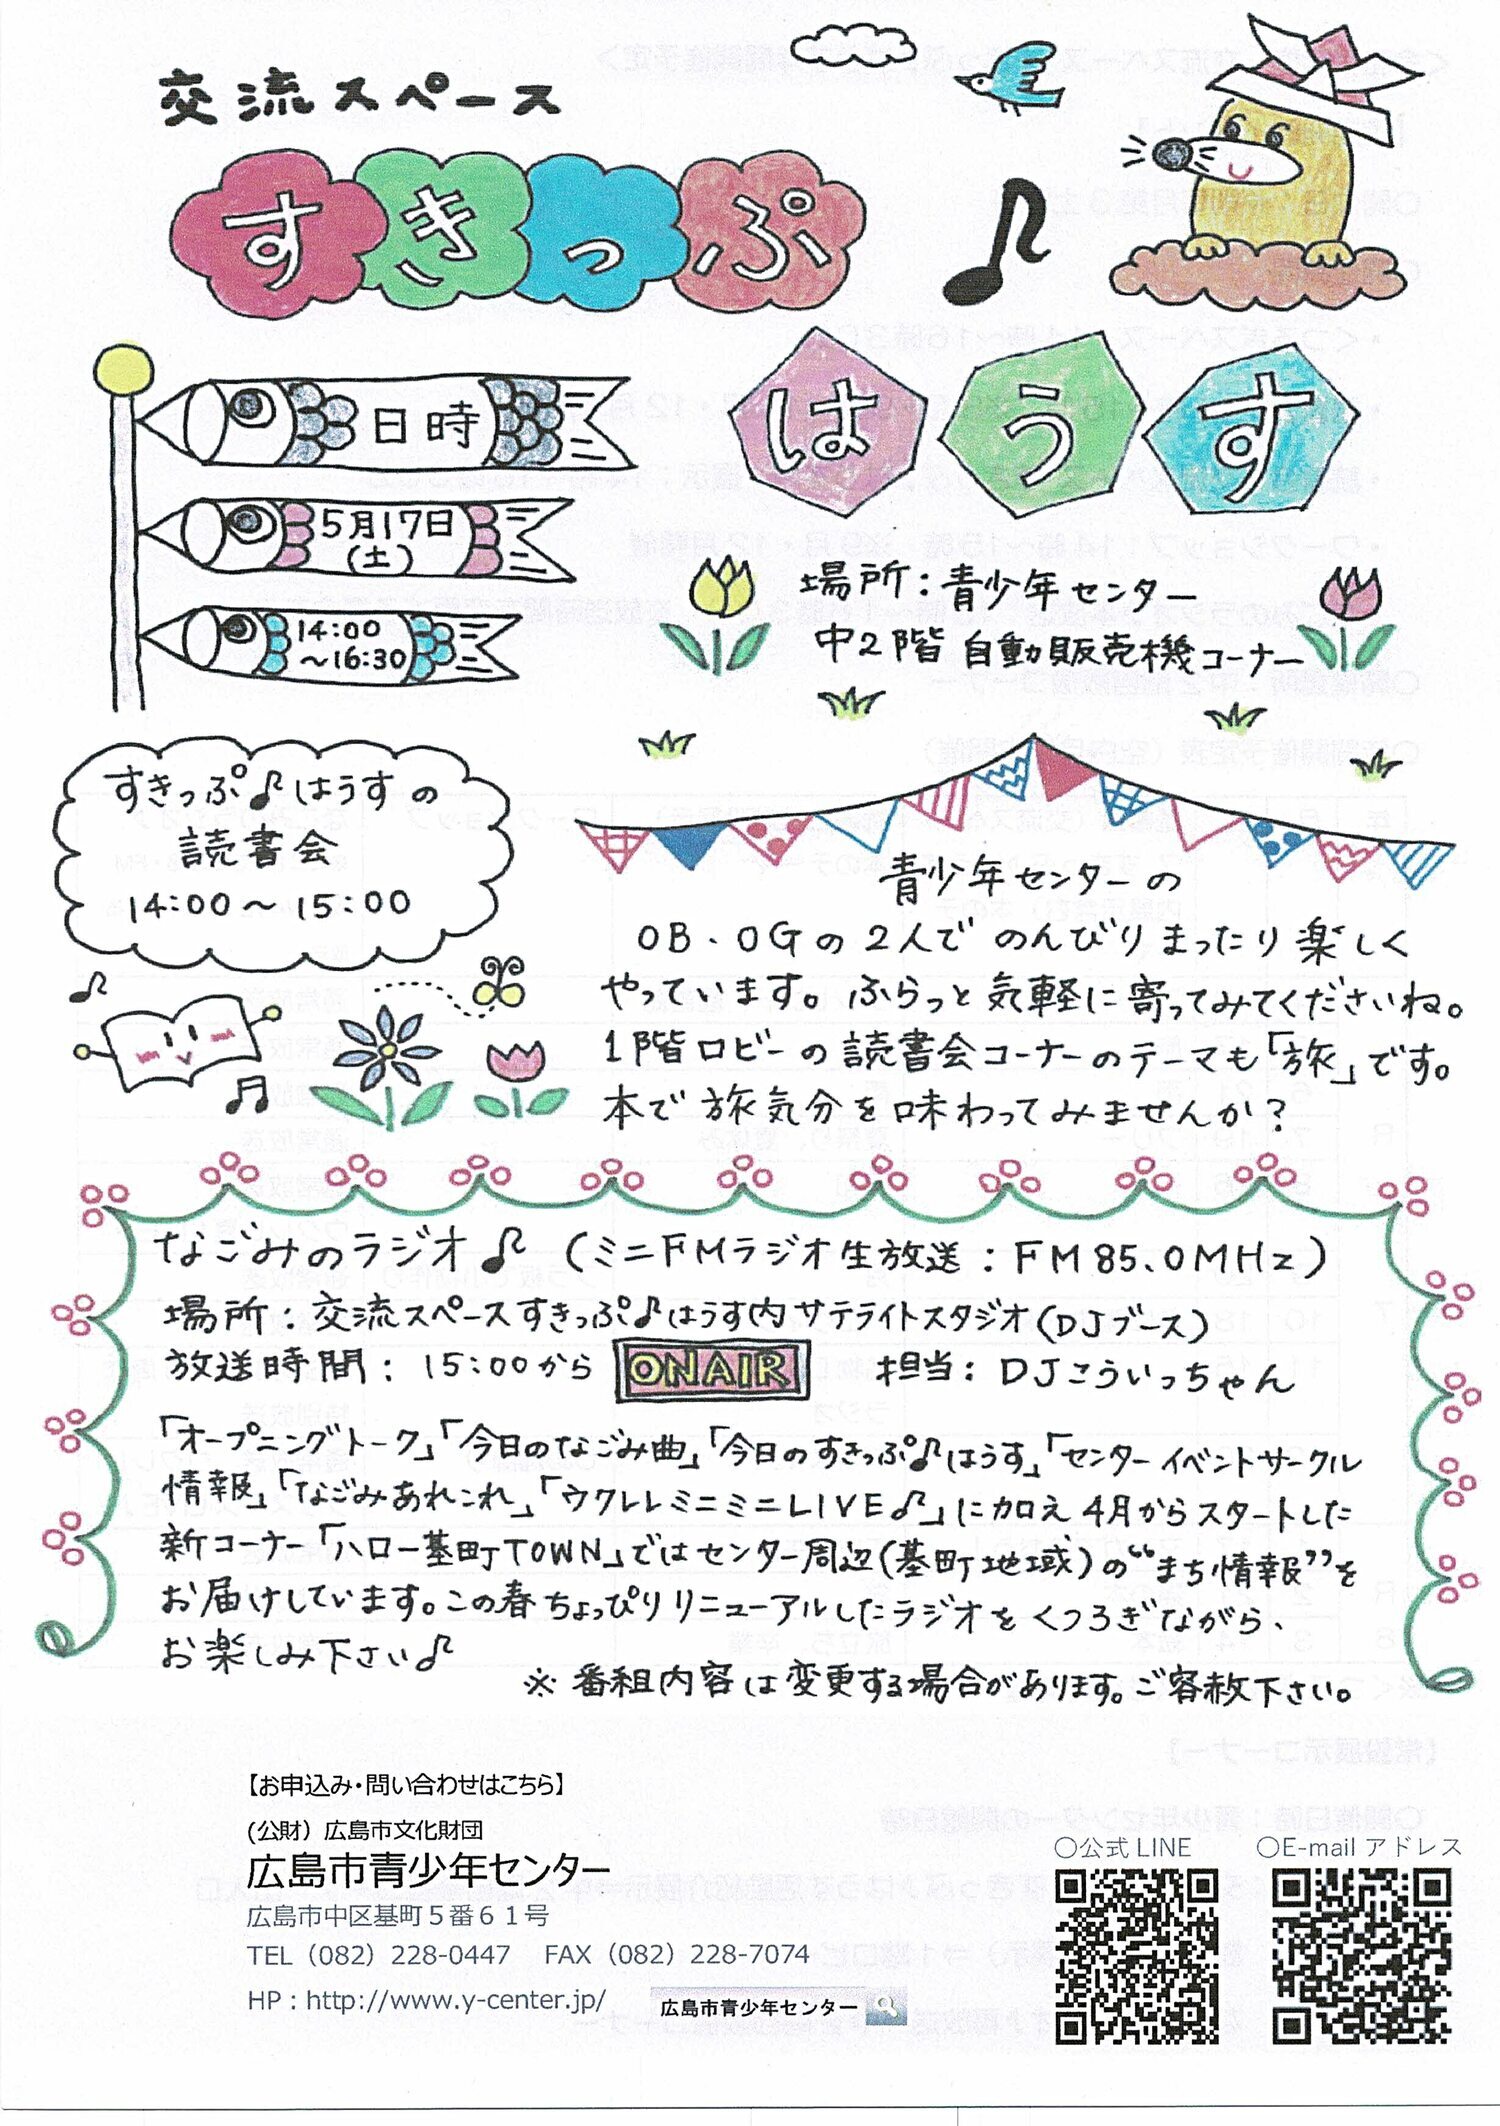 交流スペース
すきっぷ♪
はうす
日時
5月17日
(土)
14:00
～16:30
場所：青少年センター
中2階 自動販売機コーナー
すきっぷ♪はうすの
読書会
14:00～15:00
青少年センターの
OB・OGの2人で のんびりまったり楽しく
やっています。ふらっと気軽に寄ってみてくださいね。
1階ロビーの読書会コーナーのテーマも「旅」です。
本で旅気分を味わってみませんか？
なごみのラジオ♪（ミニFMラジオ生放送：FM85.0MHz）
場所：交流スペースすきっぷ♪はうす内サテライトスタジオ(DJブース)
放送時間：15:00から ON AIR 担当：DJこういっちゃん
「オープニングトーク」「今日のなごみ曲」「今日のすきっぷ♪はうす」「センターイベントサークル
情報」「なごみあれこれ」「ウクレレミニミニLIVE♪」に加え4月からスタートした
新コーナー「ハロー基町TOWN」ではセンター周辺(基町地域)の“まち情報”を
お届けしています。この春ちょっぴりリニューアルしたラジオをくつろぎながら、
お楽しみ下さい♪
※番組内容は変更する場合があります。ご容赦下さい。
【お申込み・問い合わせはこちら】
(公財）広島市文化財団
広島市青少年センター
広島市中区基町５番６１号
TEL（082）228-0447 FAX（082）228-7074
HP：http://www.y-center.jp/ 広島市青少年センター
〇公式LINE 〇E-mailアドレス